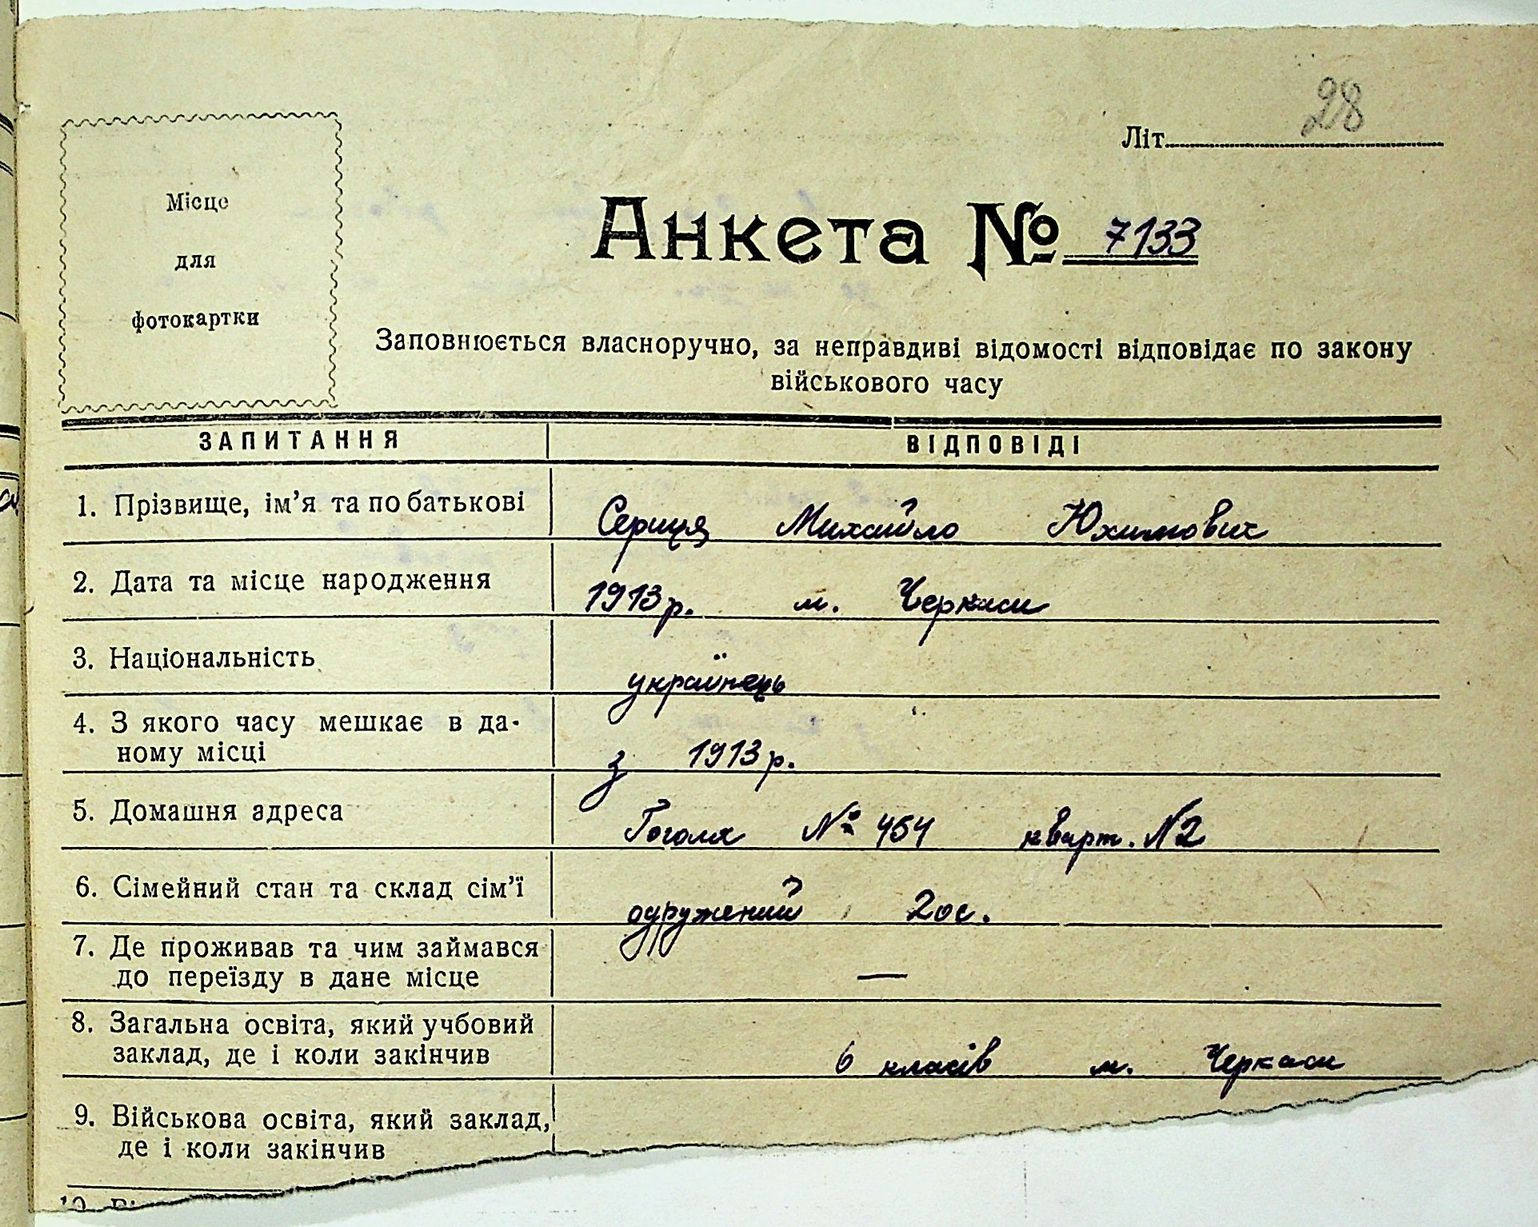 28
Літ.
Місце
для
фотокартки
Анкета № 7133
Заповнюється власноручно, за неправдиві відомості відповідає по закону
військового часу
ЗАПИТАННЯ ВІДПОВІДІ
1. Прізвище, ім'я та по батькові Сериця Михайло Юхимович
2. Дата та місце народження 1913 р. м. Черкаси
3. Національність українець
4. З якого часу мешкає в да-
ному місці з 1913 р.
5. Домашня адреса Гоголя № 454 кварт. №2
6. Сімейний стан та склад сім'ї одружений 2 ос.
7. Де проживав та чим займався
до переїзду в дане місце —
8. Загальна освіта, який учбовий
заклад, де і коли закінчив 6 класів м. Черкаси
9. Військова освіта, який заклад,
де і коли закінчив